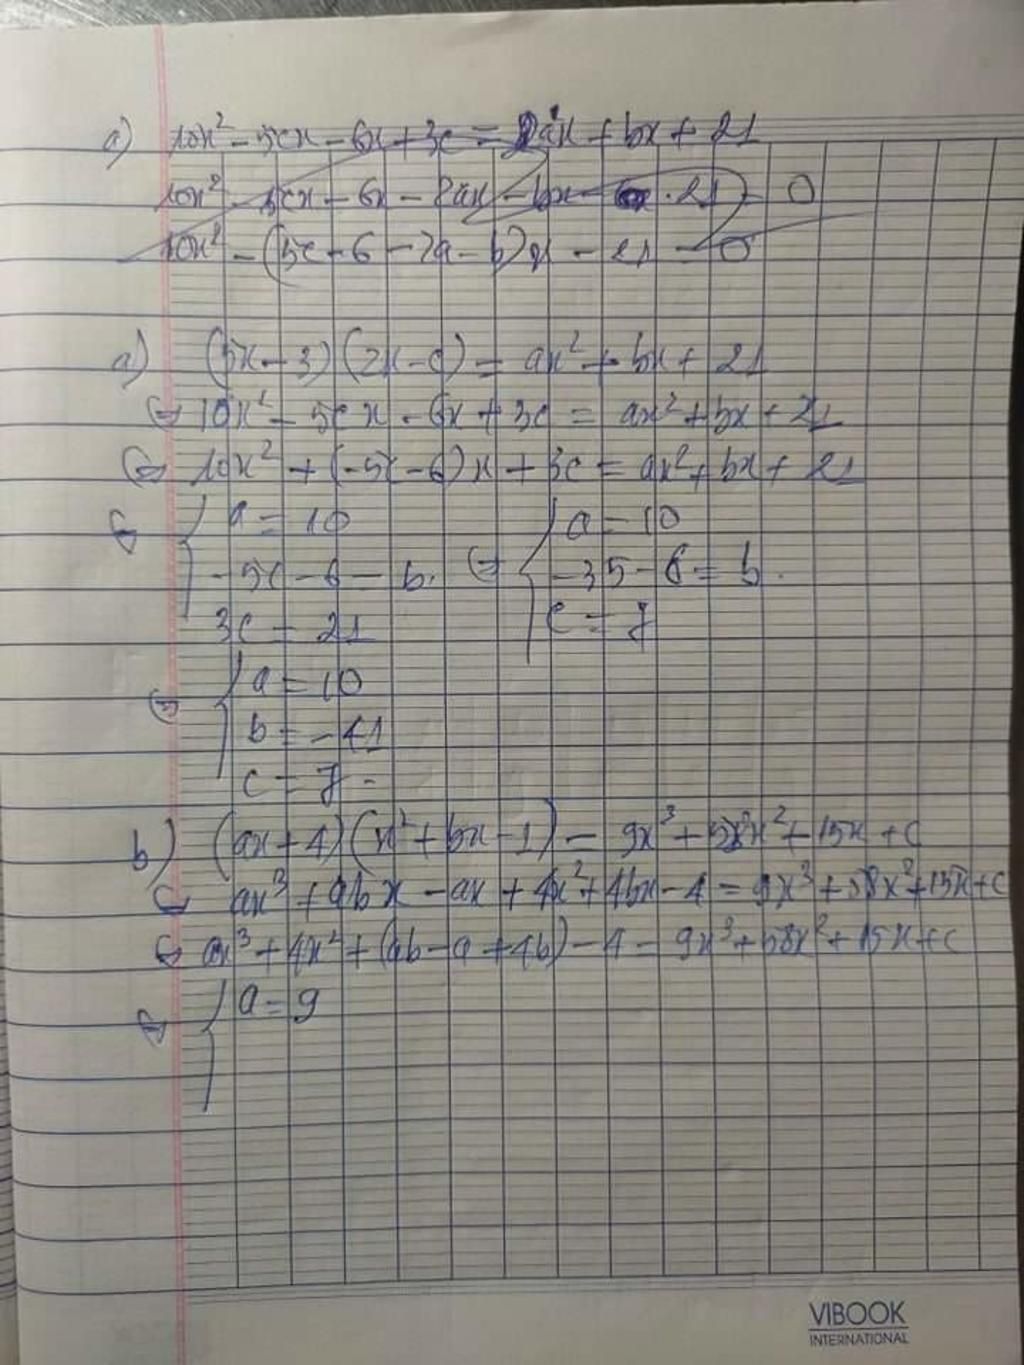 a) 10x² - 5cx - 6x + 3c = 2ax + bx + 21
10x² - 5cx - 6x - 2ax - bx - 21 = 0
10x² - (5c - 6 - 2a - b)x - 21 = 0
a) (5x - 3)(2x - c) = ax² + bx + 21
⇔ 10x² - 5cx - 6x + 3c = ax² + bx + 21
⇔ 10x² + (-5c - 6)x + 3c = ax² + bx + 21
⇔ { a = 10 { a = 10
-5c - 6 = b. ⇔ -35 - 6 = b.
3c = 21 c = 7
⇔ { a = 10
b = -41
c = 7
b) (ax + 4)(x² + bx - 1) = 9x³ + 58x² + 15x + c
⇔ ax³ + abx - ax + 4x² + 4bx - 4 = 9x³ + 58x² + 15x + c
⇔ ax³ + 4x² + (ab - a + 4b) - 4 = 9x³ + 58x² + 15x + c
⇔ { a = 9
VIBOOK
INTERNATIONAL